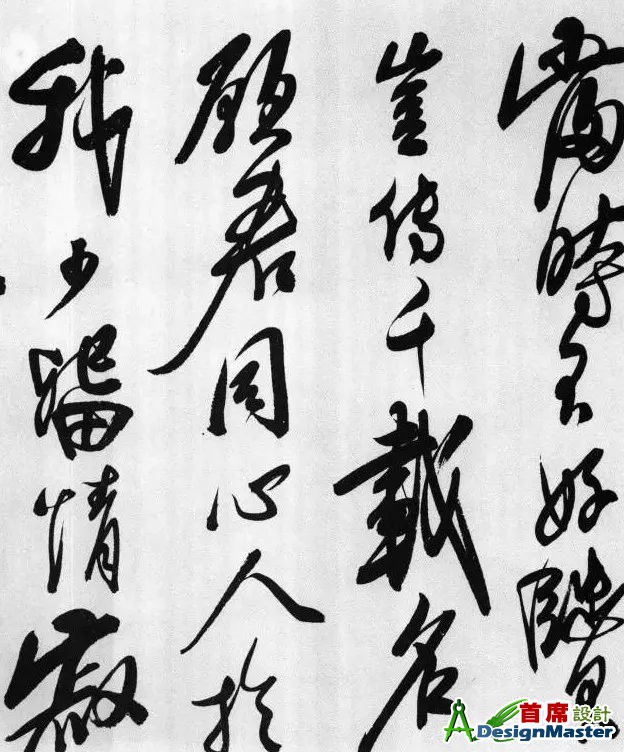 當時不好賢
豈傳千載名
願君同心人於
我少留情寂
首席設計
DesignMaster